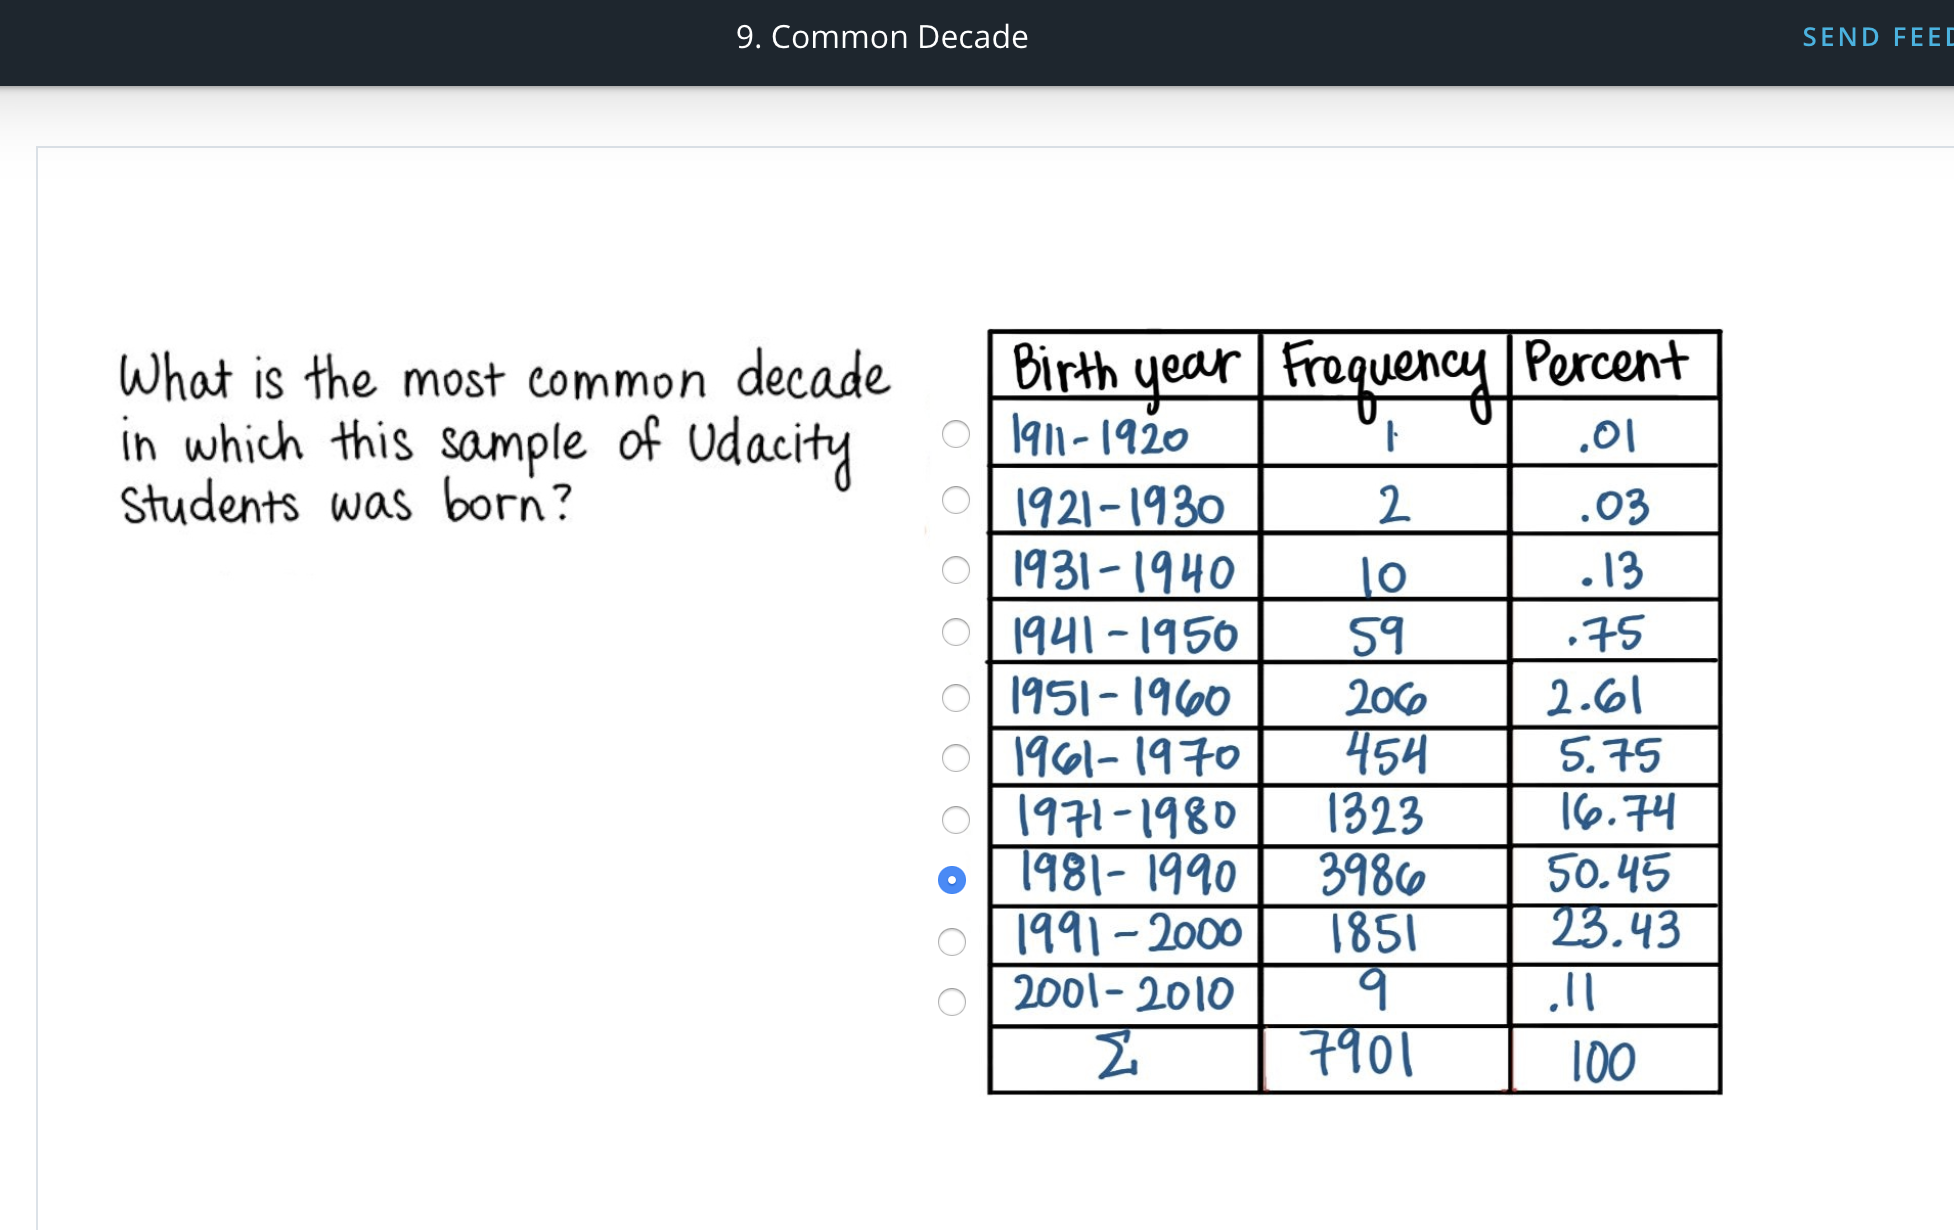 9. Common Decade
SEND FEED
What is the most common decade
in which this sample of Udacity
students was born?
Birth year Frequency Percent
1911-1920 1 .01
1921-1930 2 .03
1931-1940 10 .13
1941-1950 59 .75
1951-1960 206 2.61
1961-1970 454 5.75
1971-1980 1323 16.74
1981-1990 3986 50.45
1991-2000 1851 23.43
2001-2010 9 .11
Σ 7901 100